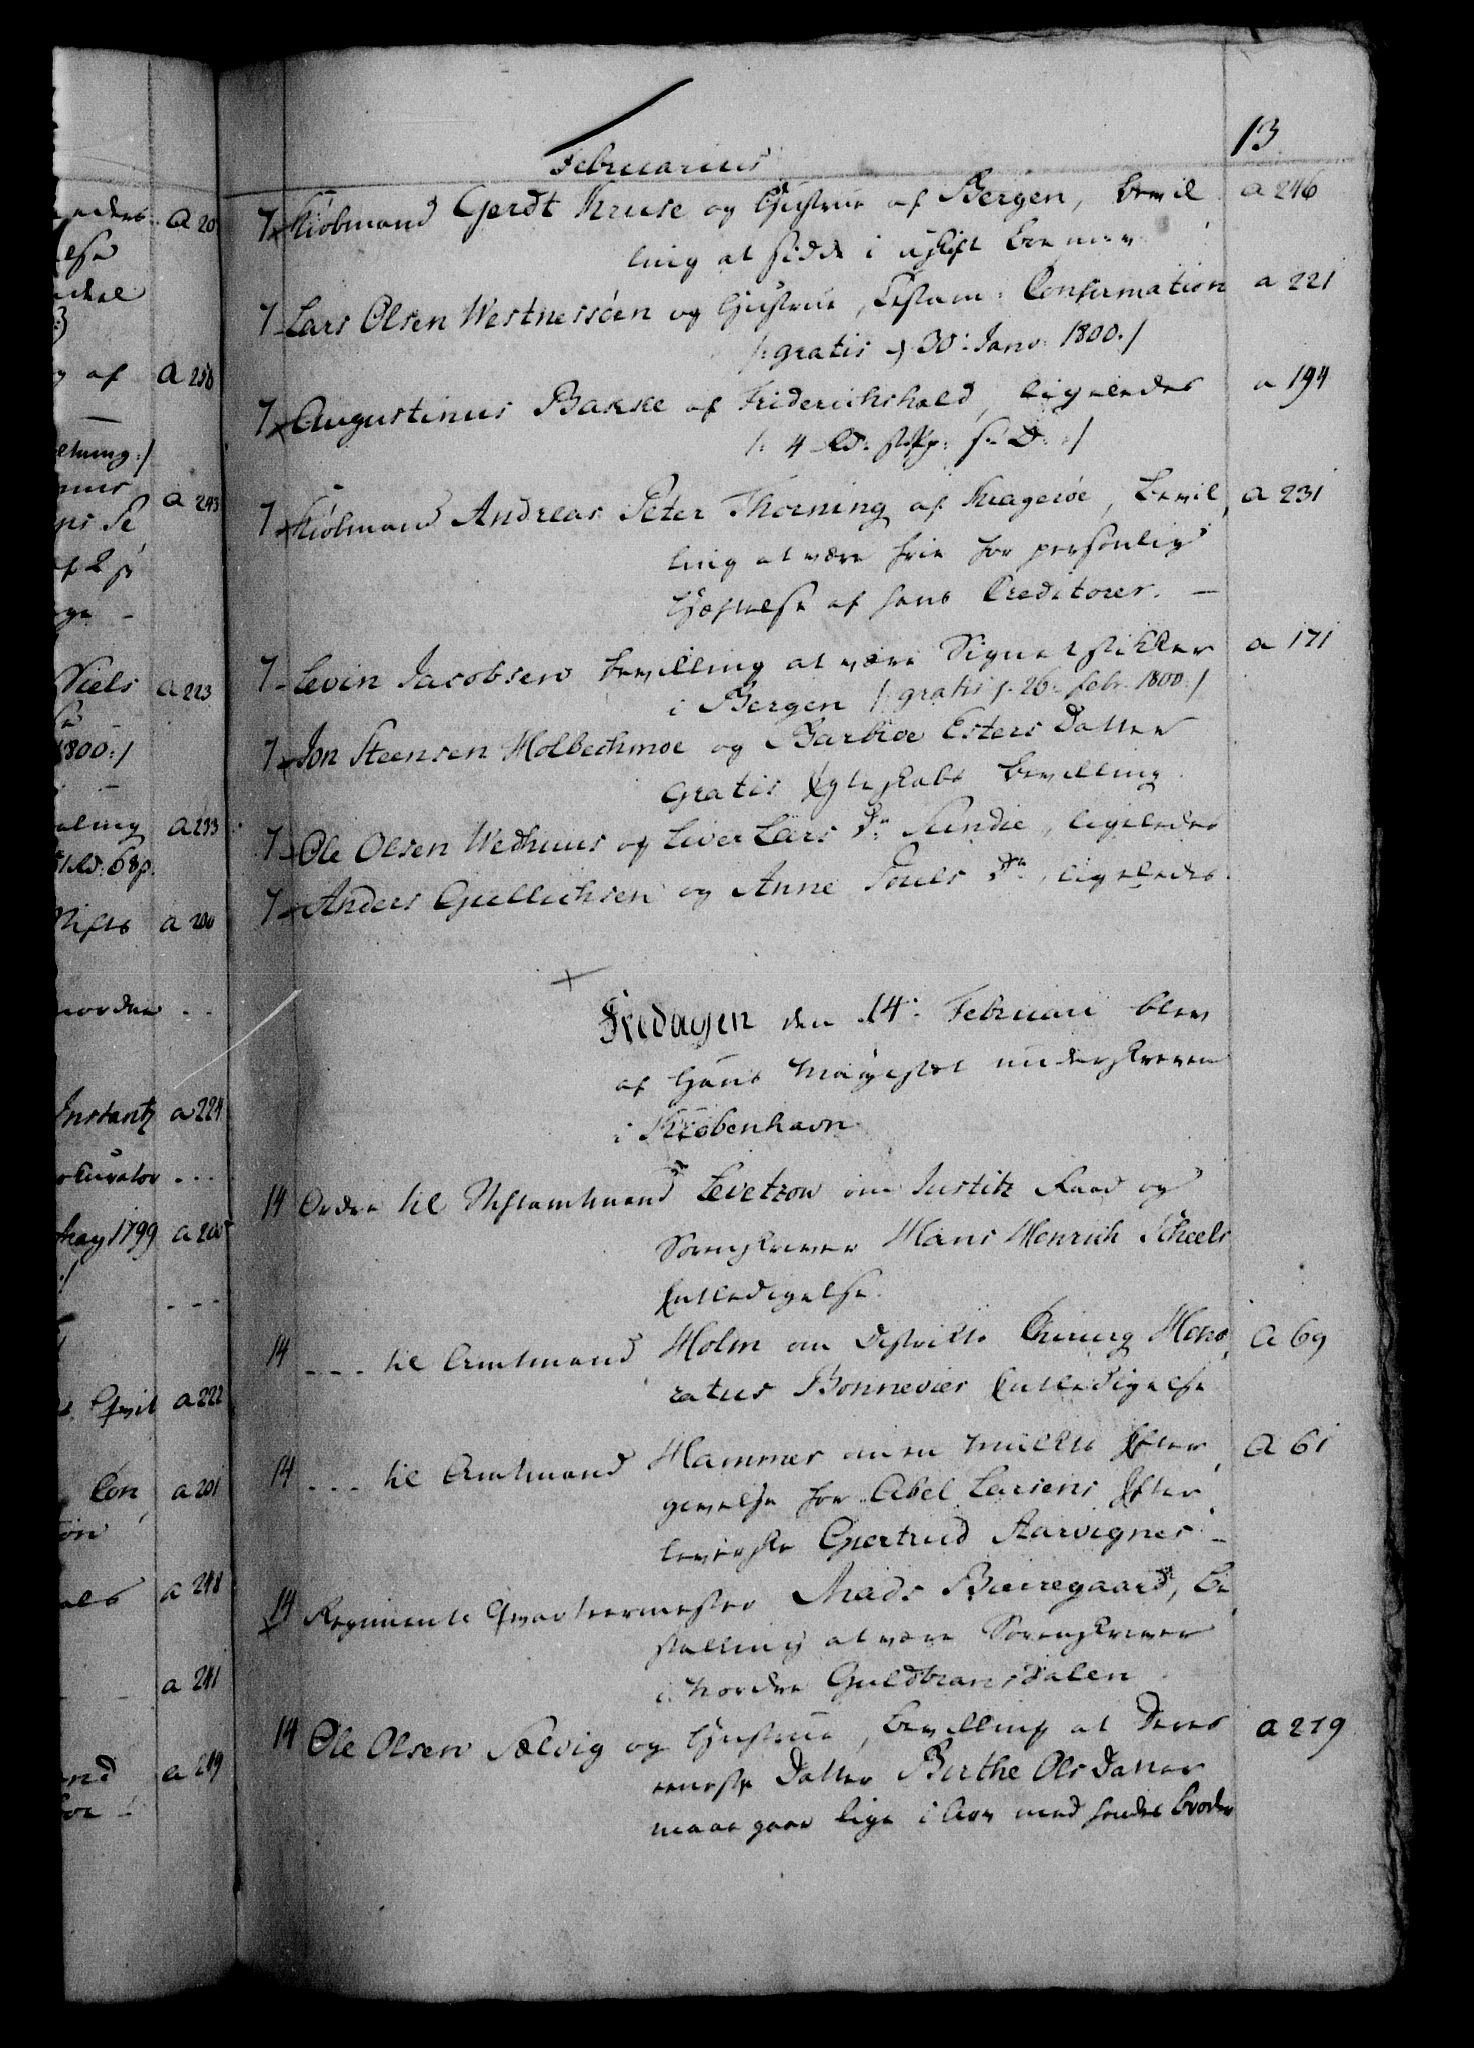 13.
Februarius
7 Kiøbmand Gerdt Kruse og Hustrue af Bergen, bevil a 246
ling at sidde i uskift boe m.v.
7 Lars Olsen Westnessöen og Hustrue, Testam: Confirmation a 221
/: gratis d 30: Janv: 1800 :/
7 Augustinus Bakke af Friderichshald, ligeledes a 194
/: 4 Rd:
7 Kiøbmand Andreas Peter Thorning af Kragerøe, bevil a 231
ling at være frie for personlig
Hæftelse af hans Creditorer. —
7 Levin Jacobsen bevilling at være Signetstikker a 171
i Bergen /: gratis s. 26: febr. 1800 :/
7 Jon Steensen Holbechmoe og Barbroe Esters Datter
Gratis Ægteskabs bevilling.
7 Ole Olsen Wedhuus og Siver Lars Dr: Sundie, ligeledes
7 Anders Gullichsen og Anne Pouls Dr, ligeledes.
Fredagen den 14: Februari blev
af Hans Mayestet underskreven
i Kiøbenhavn
14 Ordre til Stiftamtmand Levetzow om Justitz Raad og
Sorenskriver Hans Henrich Scheels
Entledigelse.
14 - - - til Amtmand Holm om Districts Chirurg Hono, a 69
ratus Bonnevies Entledigelse
14 - - - til Amtmand Hammer om en Mulkts Efter, a 61
givelse for Abel Larsens Efter,
leverske Giertrud Aarvignes —
14 Regiments Qvarteermester Mads Bieiregaard, be
stalling at være Sorenskriver
i Nordre Guldbransdalen
14 Ole Olsen Sælvig og Hustrue, bevilling at Deres a 219
eeneste Datter Birthe Ols Datter
maae gaae lige i Arv med hendes brødre
a 20
a 250
a 243
Niels a 223
1800 :/
a 233
Stifts a 200
Instantz a 224
Procurator - - -
May 1799 a 205
a 222
Con, a 201
a 248
a 241
a 249